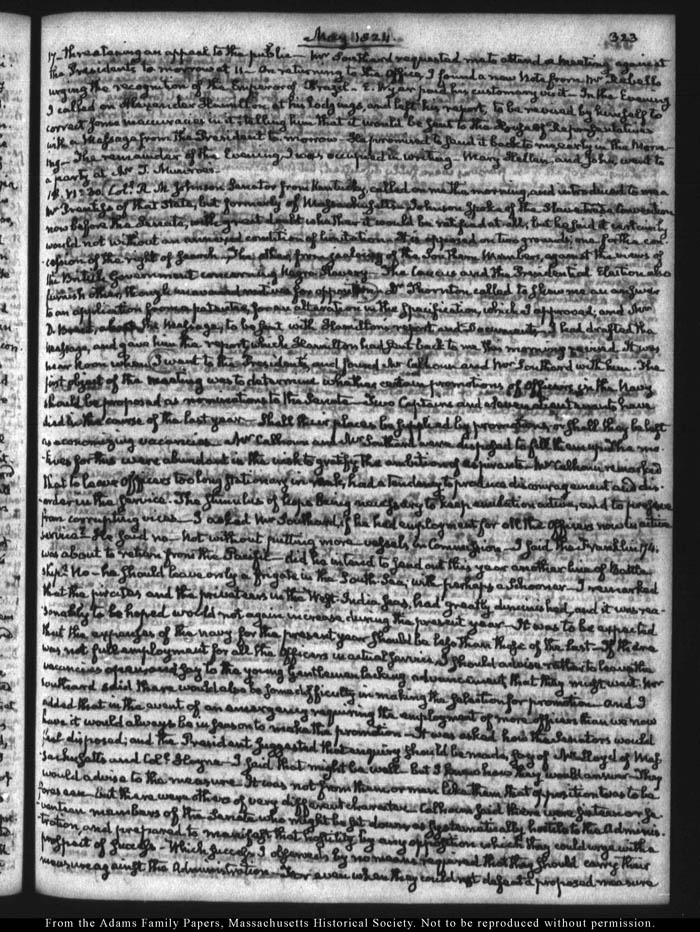 May 1824.
323
17. threatening an appeal to the public. Mr Southard requested me to attend a meeting against
the Presidents to morrow at 11. On returning to the Office, I found a new Note from Mr Rebello
urging the recognition of the Emperor of Brazil. E. Wyer paid his customary visit. In the Evening
I called on Alexander Hamilton, at his lodgings, and left his report, to be revised by himself to
correct some inaccuracies in it; telling him that it would be sent to the House of Representatives
with a Message from the President to-morrow. He promised to send it back to me early in the Morn-
ing. The remainder of the Evening I was occupied in writing. Mary Hellen, and John, went to
a party, at Mr T. Munroe's.
18. Coll. R. M. Johnson Senator from Kentucky, called on me this morning, and introduced to me a
Mr Prentiss of that State, but formerly of Massachusetts. Johnson spoke of the Slave trade Convention
now before the Senate, with great doubt whether it would be ratified at all; but he said it certainly
would not without an annexed condition of limitation. It is opposed on two grounds; one for the con-
cession of the right of Search. The other, from jealousy of the Southern Members, against the views of
the British Government concerning Negro Slavery. The Caucus and the Presidential Election also
furnish other, though unavowed motives for opposition. Dr Thornton called to shew me an answer
to an application from a patentee, for an alteration in the Specification, which I approved; and Mr
D. Brent, about the Message, to be sent with Hamilton's report and Documents. I had drafted the
Message, and gave him the report, which Hamilton had sent back to me this morning revised. It was
near Noon when I went to the President's, and found Mr Calhoun and Mr Southard with him. The
first object of the meeting was to determine whether certain promotions of Officers in the Navy
should be proposed as nominations to the Senate. Two Captains and eleven Lieutenants have
died in the course of the last year. Shall their places be supplied by promotions, or shall they be left
as economizing vacancies. Mr Calhoun and Mr Southard were disposed to fill them up. The mo-
tives for this were abundant in the wish to gratify the ambition of aspirants. Mr Calhoun remarked
that to leave Officers too long stationary in rank, had a tendency to produce discouragement and dis-
order in the service. The stimulus of hope being necessary to keep emulation active, and to preserve
from corrupting vices. I asked Mr Southard, if he had employment for all the Officers now in active
service? He said no. Not without putting more vessels in Commission. I said the Franklin 74.
was about to return from the Pacific. did he intend to send out this year another line of Battle
ship? No. he should leave only a frigate in the South Sea; with perhaps a Schooner. I remarked
that the pirates and the privateers in the West-India Seas, had greatly diminished, and it was rea-
sonably to be hoped would not again increase during the present year. It was to be expected
that the expences of the navy for the present year should be less than those of the last. If there
was not full employment for all the Officers in actual service, I should advise rather to leave the
vacancies open and say to the young Gentlemen asking advancement that they might wait. Mr
Southard said there would also be some difficulty in making the selection for promotion. And I
added that in the event of an emergency requiring the employment of more officers than we now
have it would always be in season to make the promotion. It was asked how the Senators would
feel disposed; and the President suggested that enquiry should be made, say of Mr Lloyd of Mas-
sachusetts and Coll. Hayne. I said that might be well. but I knew how they would answer. They
would advise to the measure. It was not from them or men like them that opposition was to be
foreseen. but there were others of very different character. Calhoun said there were sixteen or se-
venteen members of the Senate who might be set down as systematically hostile to the Adminis-
tration, and prepared to manifest that hostility by any opposition which they could urge with a
prospect of success. Which success I observed by no means required that they should carry their
measure against the Administration. For even when they could not defeat a proposed measure
From the Adams Family Papers, Massachusetts Historical Society. Not to be reproduced without permission.